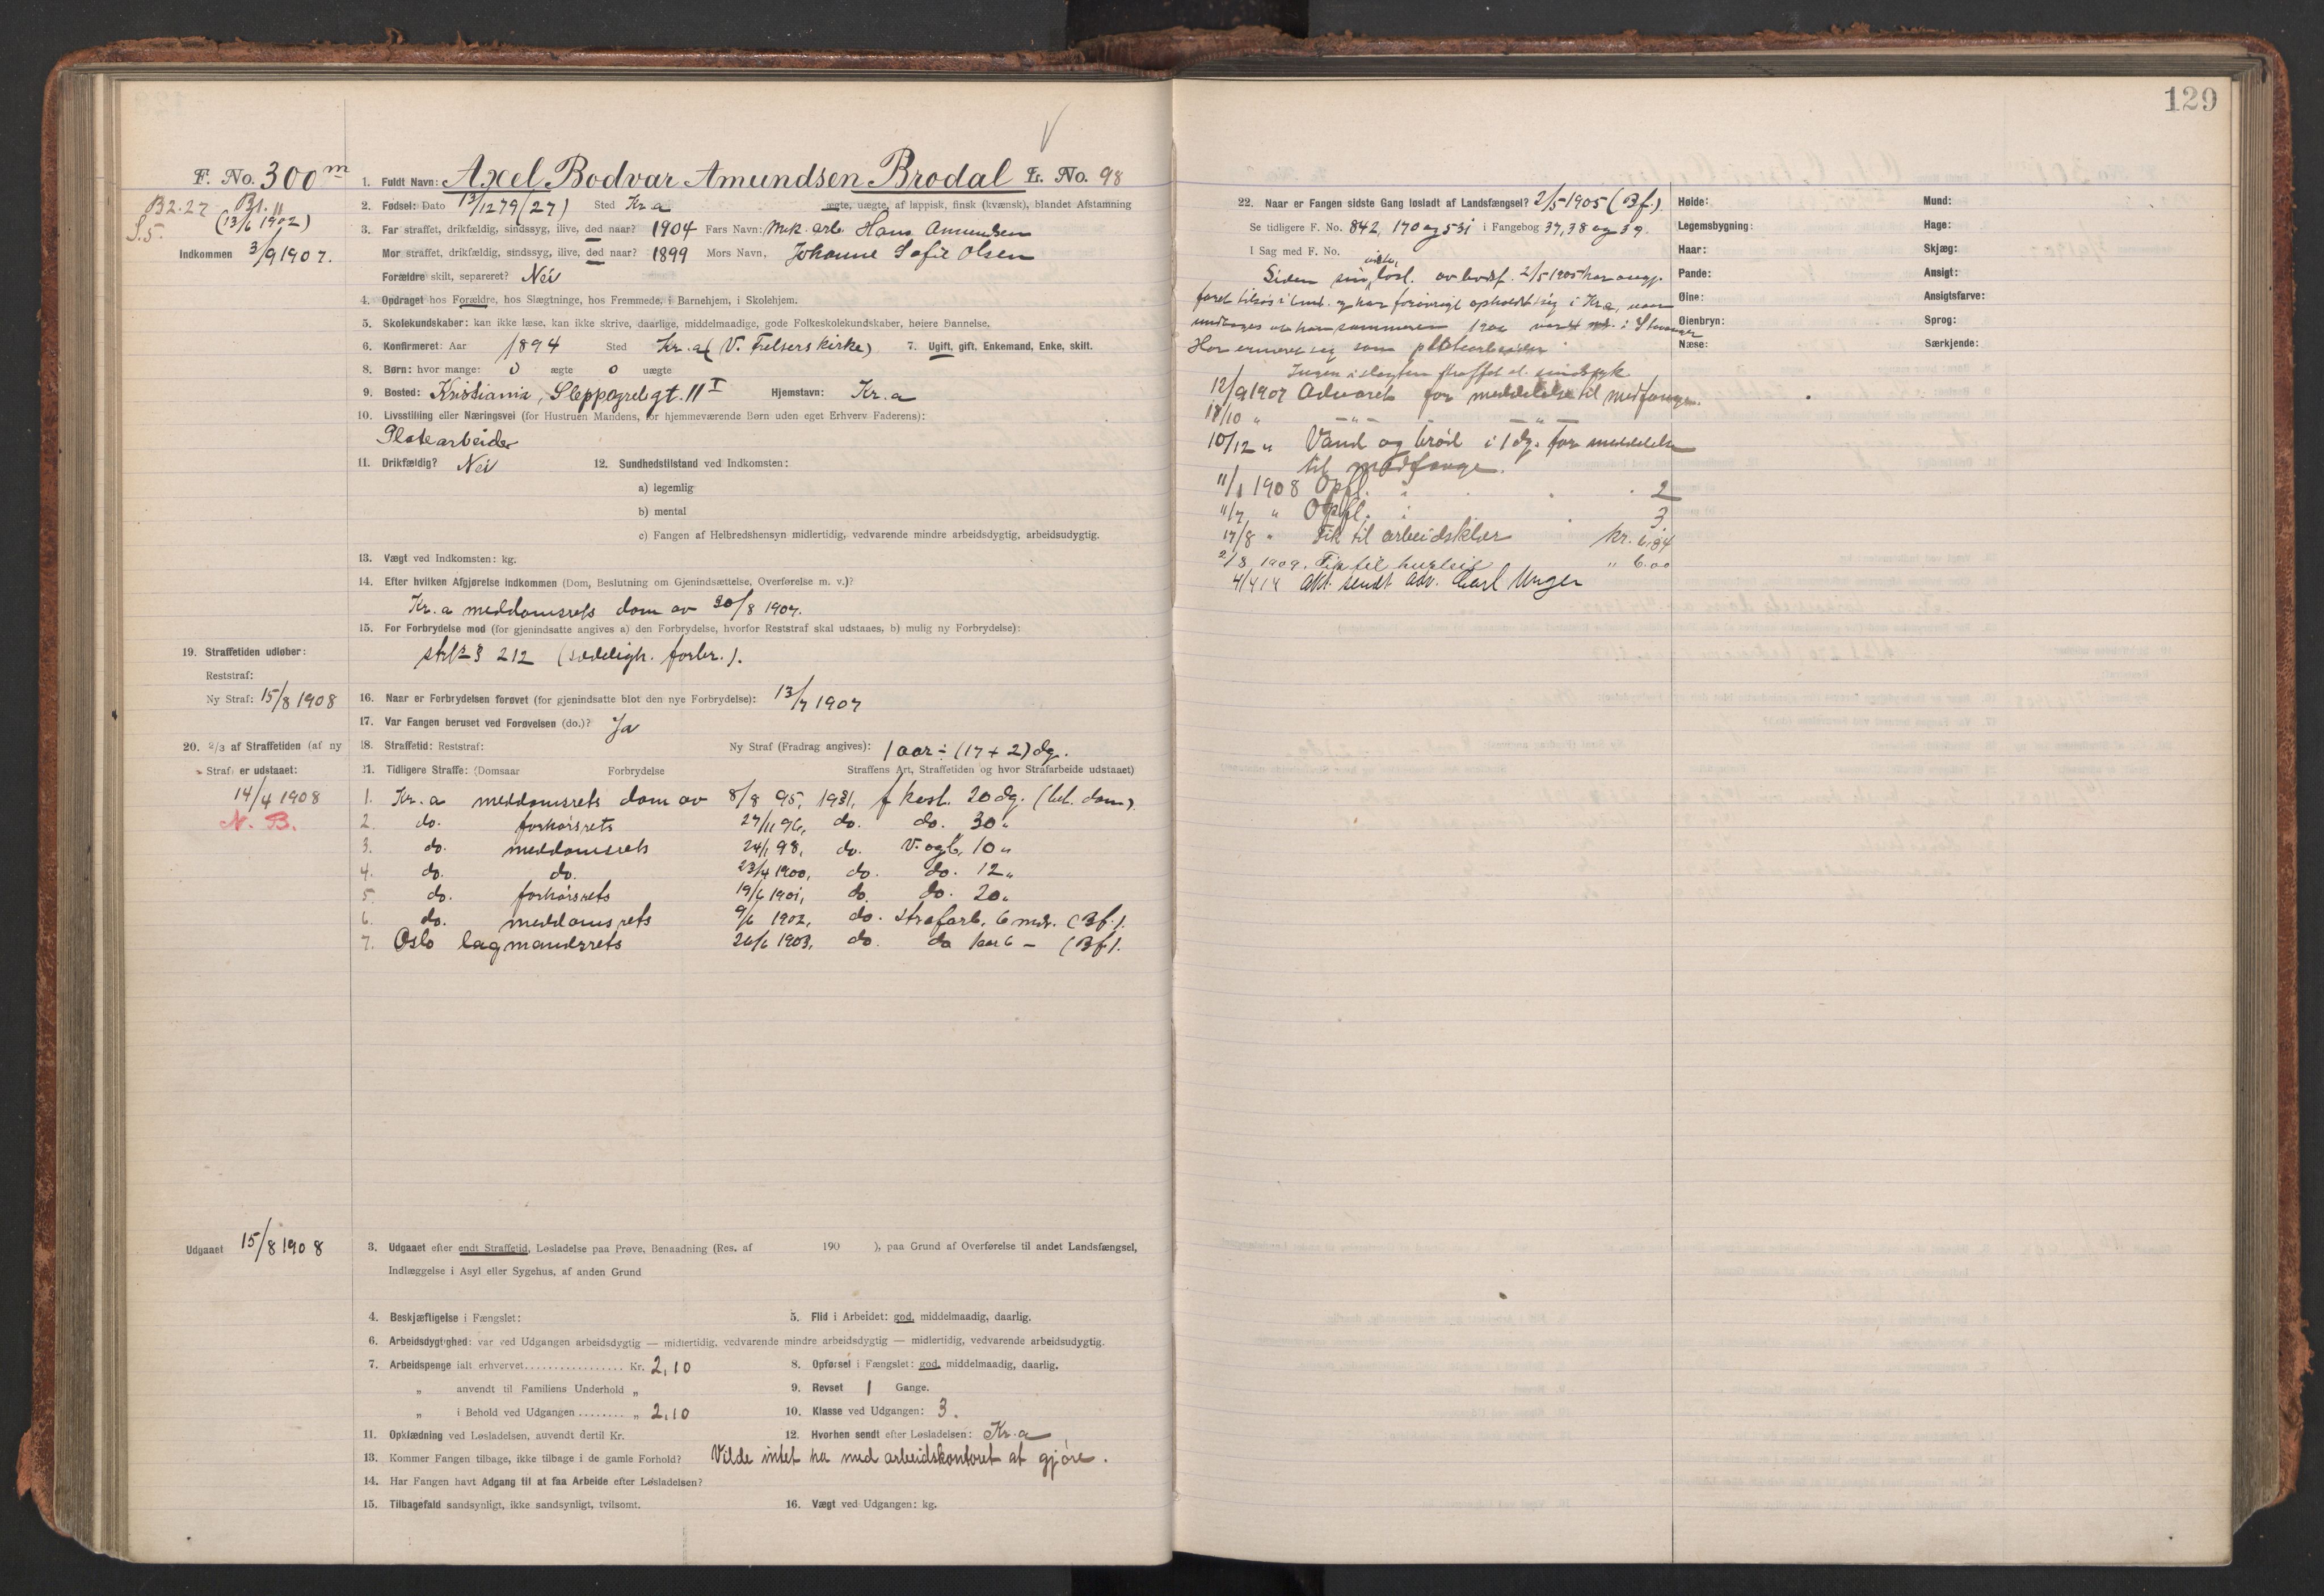 129
F. No. 300 m
B2.27 B1.11
S.5. (13/6 1902)
Indkommen 3/9 1907.
1. Fuldt Navn: Axel Bodvar Amundsen Brodal Lr. No. 98
2. Fødsel: Dato 13/12 79 (27) Sted Kr.a ægte, uægte, af lappisk, finsk (kvænsk), blandet Afstamning
3. Far straffet, drikfældig, sindssyg, ilive, død naar? 1904 Fars Navn: Mek. arb. Hans Amundsen
Mor straffet, drikfældig, sindssyg, ilive, død naar? 1899 Mors Navn, Johanne Sofie Olsen
Forældre skilt, separeret? Nei
4. Opdraget hos Forældre, hos Slægtninge, hos Fremmede, i Barnehjem, i Skolehjem.
5. Skolekundskaber: kan ikke læse, kan ikke skrive, daarlige, middelmaadige, gode Folkeskolekundskaber, høiere Dannelse.
6. Konfirmeret: Aar 1894 Sted Kr.a (V. Frelsers kirke) 7. Ugift, gift, Enkemand, Enke, skilt.
8. Børn: hvor mange: 0 ægte 0 uægte
9. Bosted: Kristiania, Sleppegrelsgt. 11 I Hjemstavn: Kr.a
10. Livsstilling eller Næringsvei (for Hustruen Mandens, for hjemmeværende Børn uden eget Erhverv Faderens):
Platearbeider
11. Drikfældig? Nei 12. Sundhedstilstand ved Indkomsten:
a) legemlig
b) mental
c) Fangen af Helbredshensyn midlertidig, vedvarende mindre arbeidsdygtig, arbeidsudygtig.
13. Vægt ved Indkomsten: kg.
14. Efter hvilken Afgjørelse indkommen (Dom, Beslutning om Gjenindsættelse, Overførelse m. v.)?
Kr.a meddomsrets dom av 30/8 1907.
15. For Forbrydelse mod (for gjenindsatte angives a) den Forbrydelse, hvorfor Reststraf skal udstaaes, b) mulig ny Forbrydelse):
§ 212 (sædeligh. forbr.).
19. Straffetiden udløber:
Reststraf:
Ny Straf: 15/8 1908
16. Naar er Forbrydelsen forøvet (for gjenindsatte blot den nye Forbrydelse): 13/7 1907
17. Var Fangen beruset ved Forøvelsen (do.)? Ja
20. 2/3 af Straffetiden (af ny
Straf) er udstaaet:
14/4 1908
N. B.
18. Straffetid: Reststraf: Ny Straf (Fradrag angives): 1 aar ÷ (17 + 2) dg.
21. Tidligere Straffe: (Domsaar Forbrydelse Straffens Art, Straffetiden og hvor Strafarbeide udstaaet)
1. Kr.a meddomsrets dom av 8/8 95, f kost. 20 dg. (bet. dom).
2. do. forhørsrets 27/11 96, do. do. 30 "
3. do. meddomsrets 24/1 98, do. V. og b. 10 "
4. do. do. 23/4 1900, do. do. 12 "
5. do. forhørsrets 19/6 1901, do. do. 20 "
6. do. meddomsrets 9/6 1902, do. strafarb. 6 mdr. (Bf.).
7. Oslo lagmandsrets 26/6 1903, do. do 1 aar 6 – (Bf).
Udgaaet 15/8 1908
3. Udgaaet efter endt Straffetid, Løsladelse paa Prøve, Benaadning (Res. af 190 ), paa Grund af Overførelse til andet Landsfængsel,
Indlæggelse i Asyl eller Sygehus, af anden Grund
4. Beskjæftigelse i Fængslet: 5. Flid i Arbeidet: god, middelmaadig, daarlig.
6. Arbeidsdygtighed: var ved Udgangen arbeidsdygtig — midlertidig, vedvarende mindre arbeidsdygtig — midlertidig, vedvarende arbeidsudygtig.
7. Arbeidspenge ialt erhvervet................. Kr. 2,10 8. Opførsel i Fængslet: god, middelmaadig, daarlig.
„ anvendt til Familiens Underhold „ 9. Revset 1 Gange.
„ i Behold ved Udgangen........ „ 2,10 10. Klasse ved Udgangen: 3.
11. Opklædning ved Løsladelsen, anvendt dertil Kr. 12. Hvorhen sendt efter Løsladelsen: Kr.a
13. Kommer Fangen tilbage, ikke tilbage i de gamle Forhold? Vilde intet ha med arbeidskontoret at gjøre.
14. Har Fangen havt Adgang til at faa Arbeide efter Løsladelsen?
15. Tilbagefald sandsynligt, ikke sandsynligt, tvilsomt. 16. Vægt ved Udgangen: kg.
22. Naar er Fangen sidste Gang løsladt af Landsfængsel? 2/5 1905 (Bf.).
Se tidligere F. No. 842, 170 og 531 i Fangebog 37, 38 og 39.
I Sag med F. No.
Siden sin sidste løsl. av bodsf. 2/5 1905 har angj.
faret tilsøs og har forøvrigt opholdt sig i Kr.a, naar
undtages at han sommeren 1906 var i Stavanger
Har ernæret sig som platearbeider
Ingen i slegten straffet el. sindssyk
12/9 1907 Advaret for meddelelse til medfange.
18/10 " —"— —"—
10/12 " Vand og brød i 1 dg. for meddelelse
til medfange.
11/1 1908 Opfl. i 2
11/7 " Opfl. i 3
17/8 " Fik til arbeidsklær kr. 6,84
2/8 1909. Fik til husleie " 6.00
4/4 14 Akt. sendt adv. Carl Unger
Høide: Mund:
Legemsbygning: Hage:
Haar: Skjæg:
Pande: Ansigt:
Øine: Ansigtsfarve:
Øienbryn: Sprog:
Næse: Særkjende: